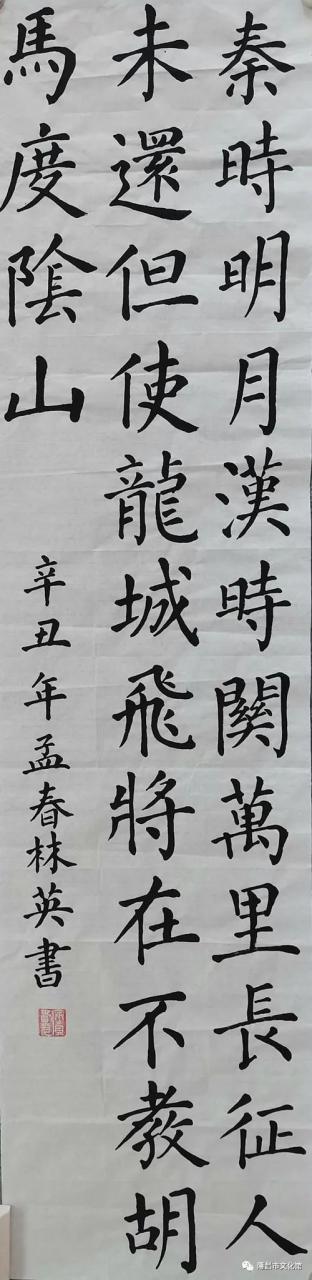 秦時明月漢時關萬里長征人
未還但使龍城飛將在不教胡
馬度陰山
辛丑年孟春林英書